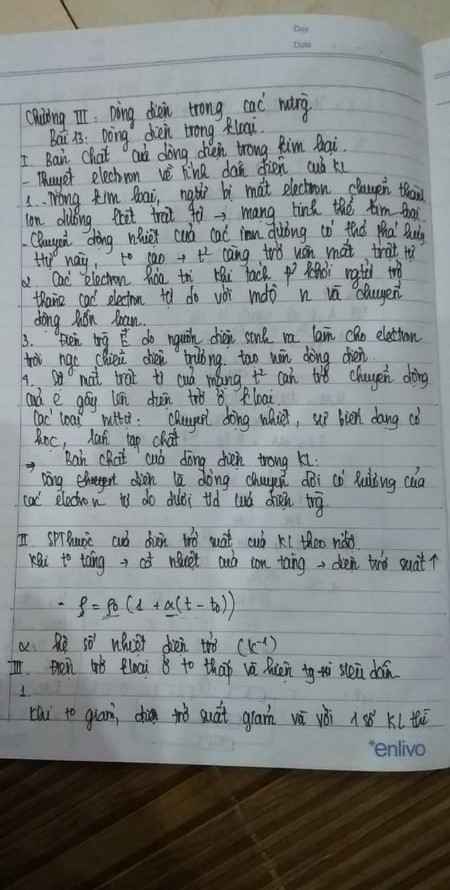 Day
Date
Chương III: Dòng điện trong các mtrg.
Bài 13: Dòng điện trong kloại.
I Bản chất của dòng điện trong kim loại.
- Thuyết electron về tính dẫn điện của KL
1. Trong kim loại, ngtử bị mất electron chuyển thành
ion dương trật tự → mạng tinh thể kim loại
- Chuyển động nhiệt của các ion dương có thể phá hủy
ttự này, t° cao → t² càng trở nên mất trật tự
2 Các electron hóa trị khi tách khỏi ngtử trở
thành các electron tự do với mđộ n và chuyển
động hỗn loạn.
3. Điện trg E do nguồn điện sinh ra làm cho electron
trôi ngc chiều điện trường, tạo nên dòng điện.
4. Sự mất trật tự của mạng t² cản trở chuyển động
của e gây lên điện trở ở kloại
Các loại mttự: chuyển động nhiệt, sự biến dạng cơ
học, lẫn tạp chất
→ Bản chất của dòng điện trong KL:
Dòng điện là dòng chuyển dời có hướng của
các electron tự do dưới tđ của điện trg
II SPThuộc của điện trở suất của KL theo nhđộ
Khi t° tăng → cđ nhiệt của ion tăng → điện trở suất ↑
- ρ = ρ0 (1 + α(t - t0))
α hệ số nhiệt điện trở (K⁻¹)
III. Điện trở kloại ở t° thấp và hiện tg siêu dẫn
1.
Khi t° giảm, điện trở suất giảm và với 1 số KL thì
enlivo